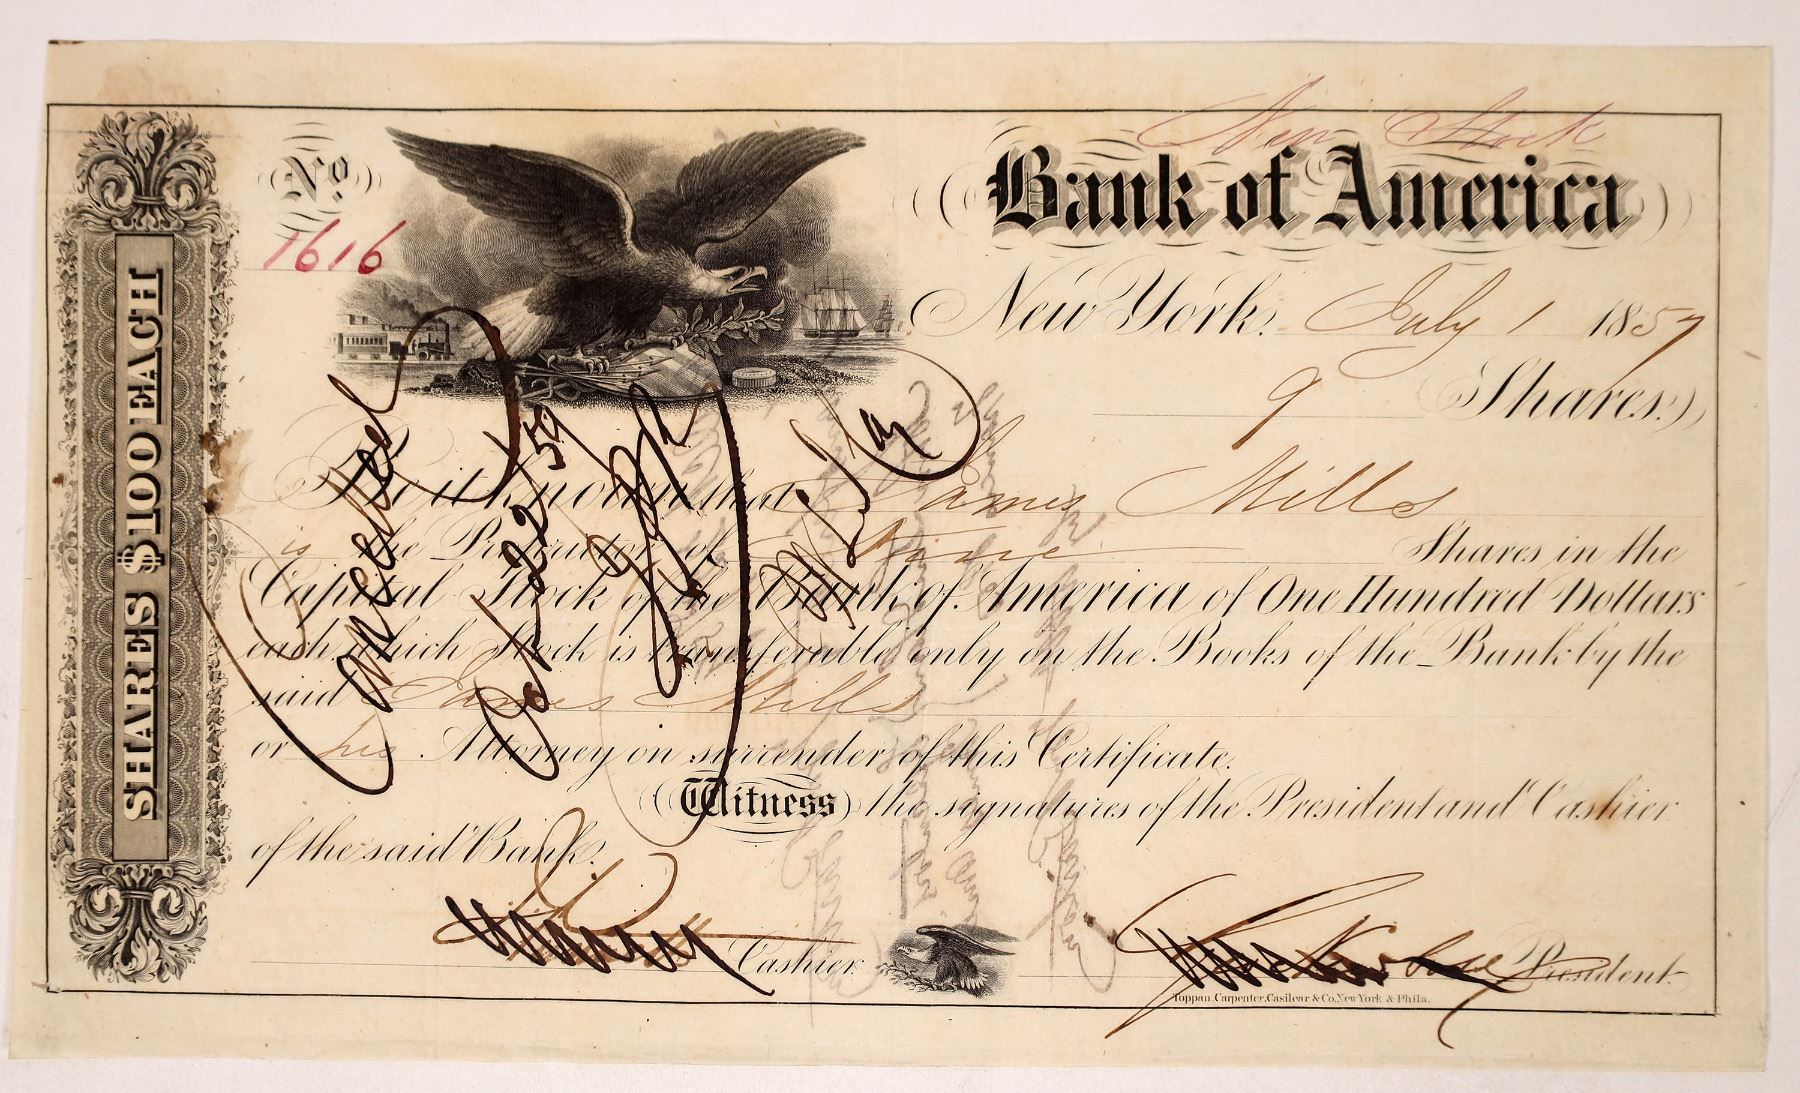 New Stock
Bank of America
No.
1616
New York, July 1 1857
9 Shares.
SHARES $100 EACH
Be it known that James Mills
is the Proprietor of Nine Shares in the
Capital Stock of the Bank of America of One Hundred Dollars
each which Stock is transferable only on the Books of the Bank by the
said James Mills
or his Attorney on surrender of this Certificate.
Witness the signatures of the President and Cashier
of the said Bank.
Cashier.
President.
Toppan, Carpenter, Casilear & Co. New York & Phila.
Cancelled
Oct 22/59